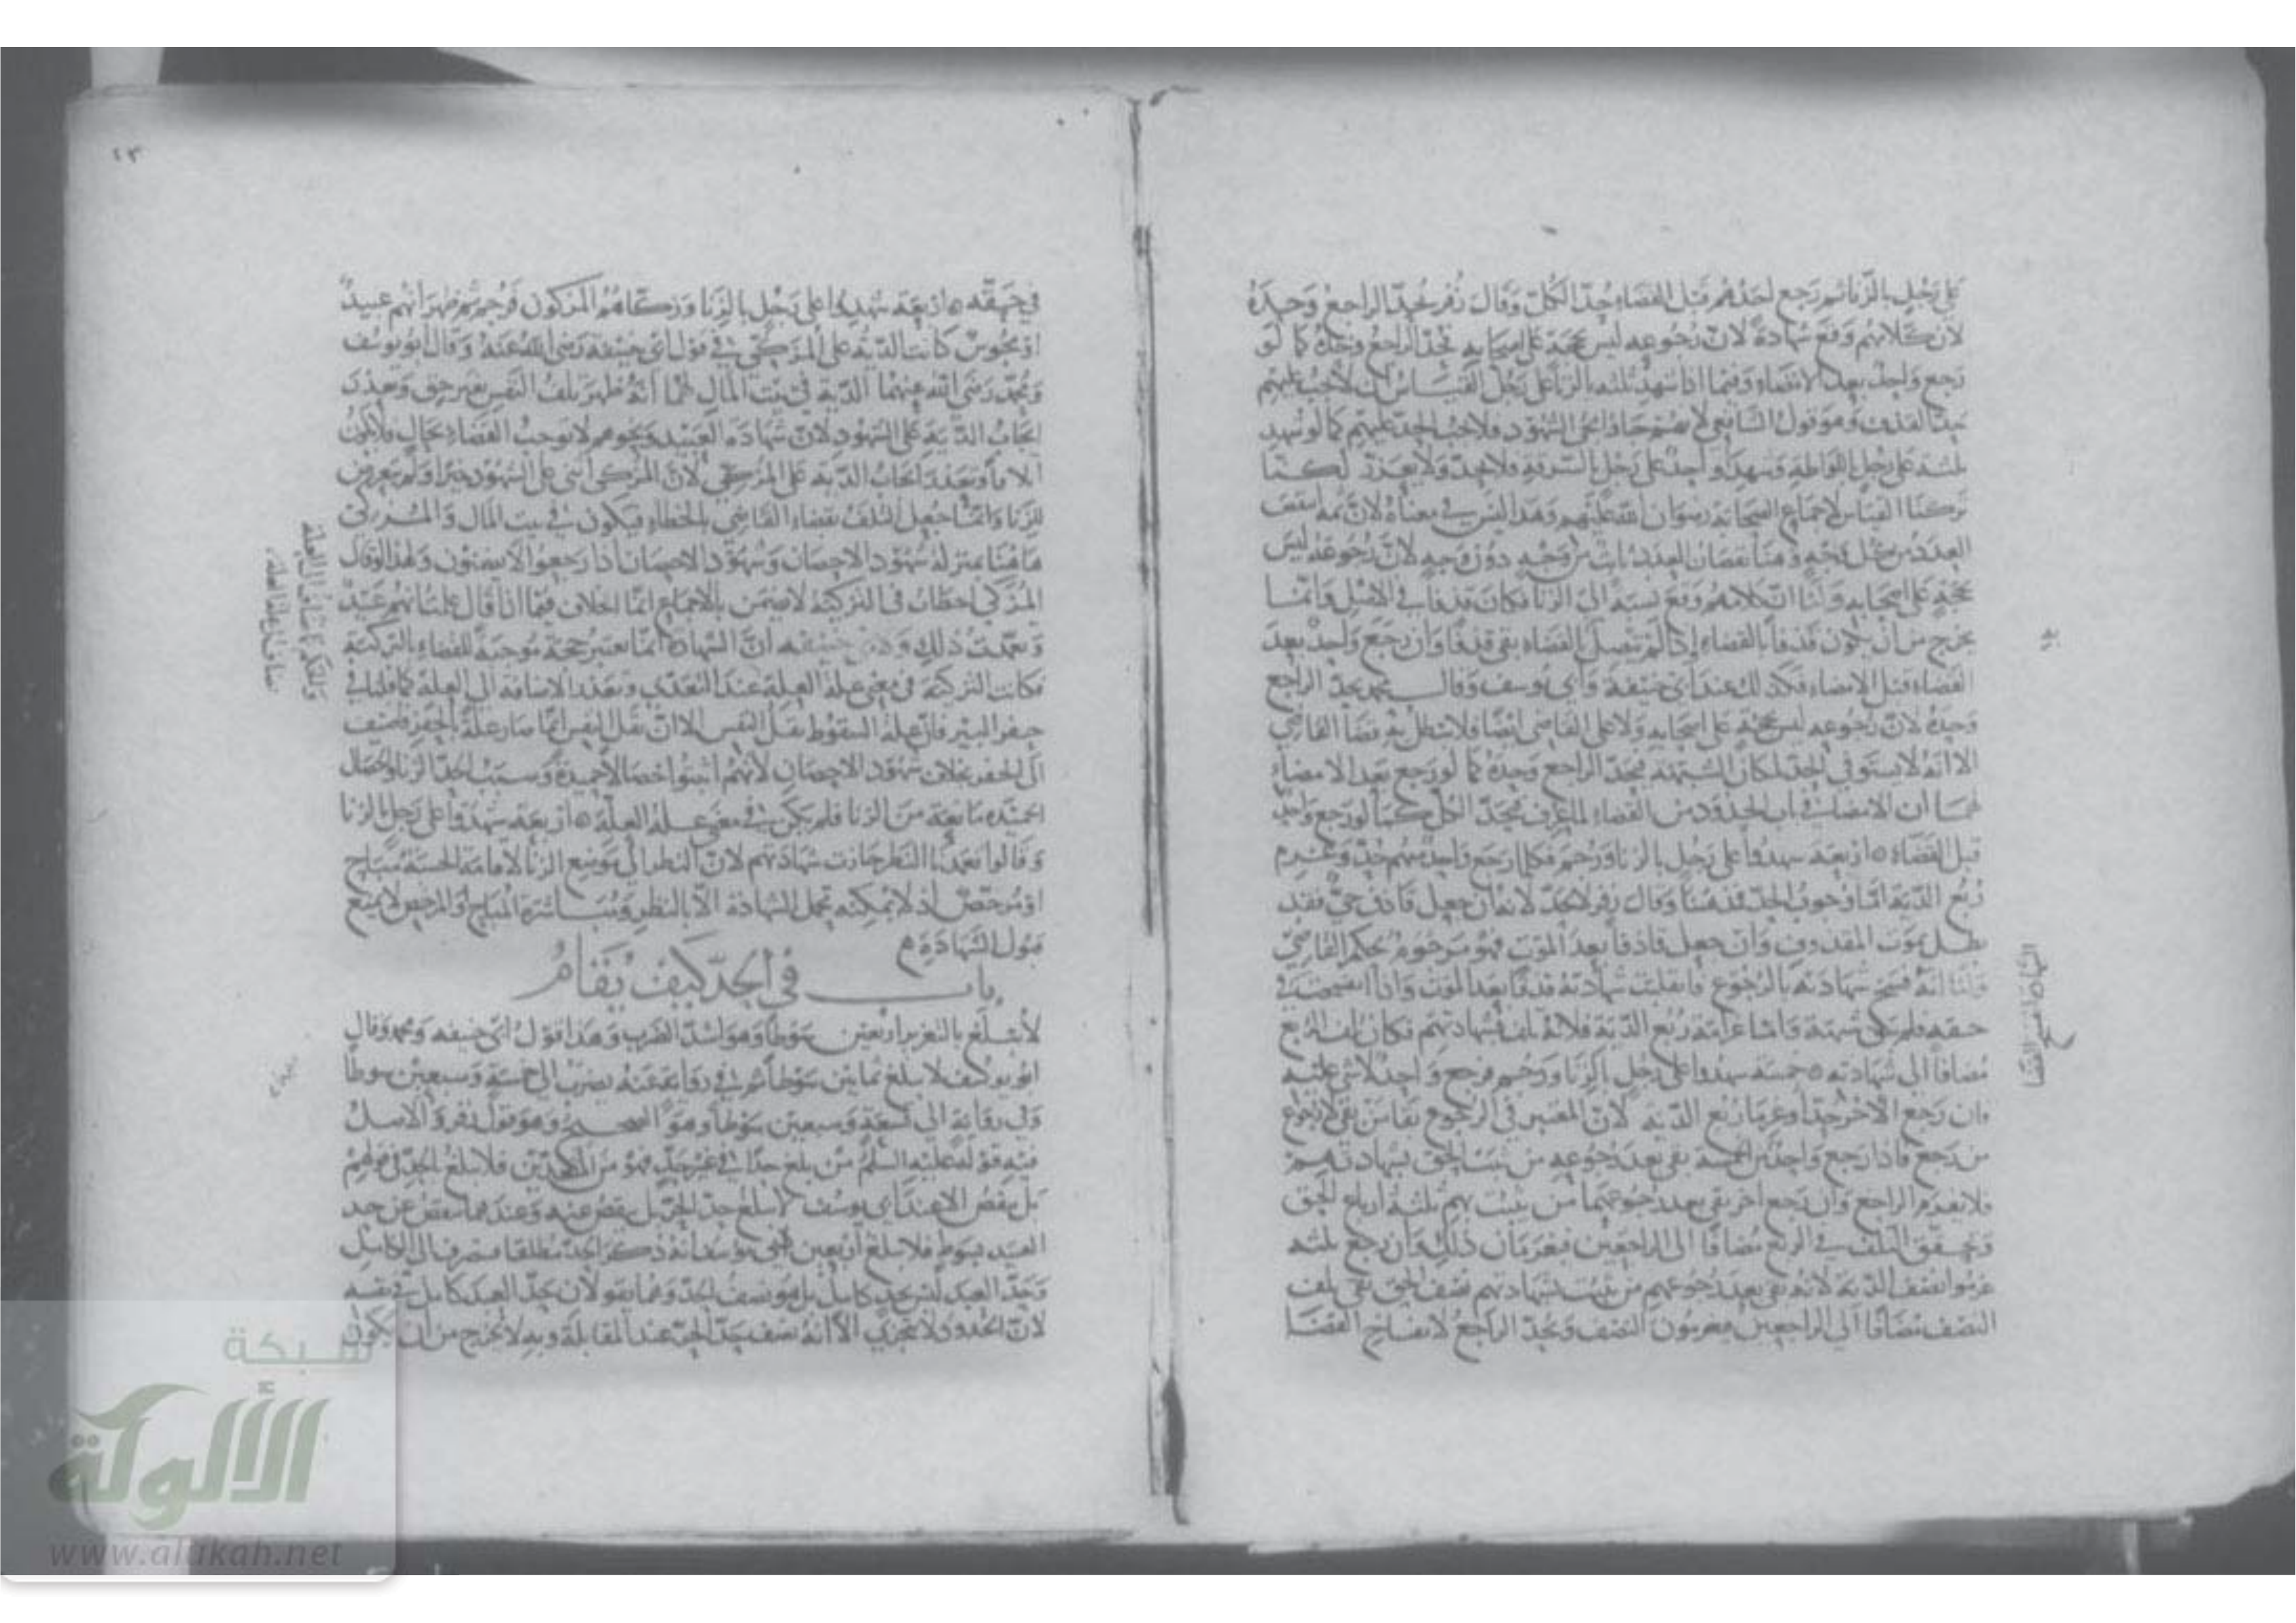 على رجل بالزنا ثم رجع احدهم قبل القضاء حد الكل وقال زفر يحد الراجع وحده
لان كلامهم وقع شهادة لان رجوعه ليس بحجة على اصحابه فيحد الراجع وحده كما لو
رجع واحد بعد الامضاء وفيما اذا شهد ثلثه بالزنا على رجل القياس ان لا يجب عليهم
حد القذف وهو قول الشافعي لانهم جاؤا مجئ الشهود فلا يجب الحد عليهم كما لو شهد
ثلثة على رجل باللواطة وشهد واحد على رجل بالسرقة فلا يحد ولا يعزر لكنا
تركنا القياس لاجماع الصحابة رضوان الله عليهم وهذا ليس في معناه لان ثمه انتقص
العدد من كل وجه وهنا نقصان العدد ثابت من وجه دون وجه لان رجوعه ليس
بحجة على اصحابه ولنا ان كلامهم وقع نسبة الى الزنا فكان قذفا في الاصل وانما
يخرج من ان يكون قذفا بالقضاء اذا لم يتصل القضاء بقي قذفا وان رجع واحد بعد
القضاء قبل الامضاء فكذلك عند ابي حنيفة وابي يوسف وقال محمد يحد الراجع
وحده لان رجوعه ليس بحجة على اصحابه ولا على القاضي ايضا فلا يبطل به قضا القاضي
الا انه لا يستوفي الحد لمكان الشبهة فيحد الراجع وحده كما لو رجع بعد الامضاء
لهما ان الامضاء في باب الحدود من القضاء لما عرف فيحد الكل كما لو رجع واحد
قبل القضاء ه اربعة شهدوا على رجل بالزنا ورجم فكلما رجع واحد منهم حد وغرم
ربع الدية اما وجوب الحد فمذهبنا وقال زفر لا يحد لانه ان جعل قاذف حي فقد
بطل بموت المقذوف وان جعل قاذفا بعد الموت فهو مرجوم بحكم القاضي
ولنا انه فسخ شهادته بالرجوع فانقلبت شهادته قذفا بعد الموت واذا انفسخت في
حقه فلم تبق شبهة واما غرامته ربع الدية فلانه تلف بشهادتهم فكان تلف الربع
مضافا الى شهادته ه خمسة شهدوا على رجل بالزنا ورجم فرجع واحد لا شئ عليه
فان رجع الاخر حدا وغرما ربع الدية لان المعتبر في الرجوع بقا من بقي لا رجوع
من رجع فاذا رجع واحد من الخمسة بقي بعد رجوعه من يثبت الحق بشهادتهم
فلا يغرم الراجع وان رجع اخر بقي بعد رجوعهما من يثبت بهم ثلثة ارباع الحق
وتحقق التلف في الربع مضافا الى الراجعين فيغرمان ذلك وان رجع ثلثه
غرموا نصف الدية لانه بقي بعد رجوعهم من يثبت بشهادتهم نصف الحق بقي تلف
النصف مضافا الى الراجعين فيغرمون النصف ويحد الراجع لانفساخ القضا
٤٣
في حقه ه اربعة شهدوا على رجل بالزنا وزكاهم المزكون فرجم ثم ظهر انهم عبيد
او مجوس كانت الدية على المزكي في قول ابي حنيفة رضي الله عنه وقال ابو يوسف
ومحمد رضي الله عنهما الدية في بيت المال لهما انه ظهر تلف النفس بغير حق وتعذر
ايجاب الدية على الشهود لان شهادة العبيد ونحوهم لا توجب القضاء بحال فلا يكون
وتعذر ايجاب الدية على المزكي لان المزكي اثنى على الشهود خيرا ولم يتعرض
للزنا وانما حصل التلف بقضاء القاضي بالخطاء فيكون في بيت المال والمزكي
هاهنا بمنزلة شهود الاحصان وشهود الاحصان اذا رجعوا لا يضمنون ولهذا لو قال
المزكي اخطات في التزكية لا يضمن بالاجماع انما الخلاف فيما اذا قال علمت انهم عبيد
وتعمدت ذلك ولابي حنيفه ان الشهادة انما تصير حجة موجبة للقضاء بالتزكية
فكانت التزكية في معنى علة العلة عند التعدي وتعذر الاضافة الى العلة كما قلنا في
حفر البير فان علة السقوط ثقل النفس الا ان ثقل النفس انما صار علة بالحفر فاضيف
الى الحفر بخلاف شهود الاحصان لانهم اثبتوا خصالا حميدة وسبب الحد الزنا والخصال
الحميدة مانعة من الزنا فلم يكن في معنى علة العلة ه اربعة شهدوا على رجل بالزنا
وقالوا تعمدنا النظر جازت شهادتهم لان النظر الى موضع الزنا لاقامة الحسبة مباح
او مرخص اذ لا يمكنه تحمل الشهادة الا بالنظر ومباشرة المباح والمرخص لا يمنع
قبول الشهادة م
باب في الحد كيف يقام
لا يبلغ بالتعزير اربعين سوطا وهو اشد الضرب وهذا قول ابي حنيفه ومحمد وقال
ابو يوسف لا يبلغ ثمانين سوطا ثم في رواية عنه يضرب الى خمسة وسبعين سوطا
وفي رواية الى تسعة وسبعين سوطا وهو الصحيح وهو قول زفر والاصل
فيه قوله عليه السلم من بلغ حدا في غير حد فهو من المعتدين فلا يبلغ الحد في قولهم
بل ينقص الا عند ابي يوسف لا يبلغ حد الحر بل ينقص عنه وعندهما ينقص عن حد
العبد فلا يبلغ اربعين انه ذكر الحد مطلقا فينصرف الى الكامل
وحد العبد ليس بحد كامل بل هو نصف الحد وهما يقولان حد العبد كامل في نفسه
لان الحدود لا تتجزى الا انه نصف حد الحر عند المقابلة وبه لا يخرج من ان يكون
شبكة
الألوكة
www.alukah.net